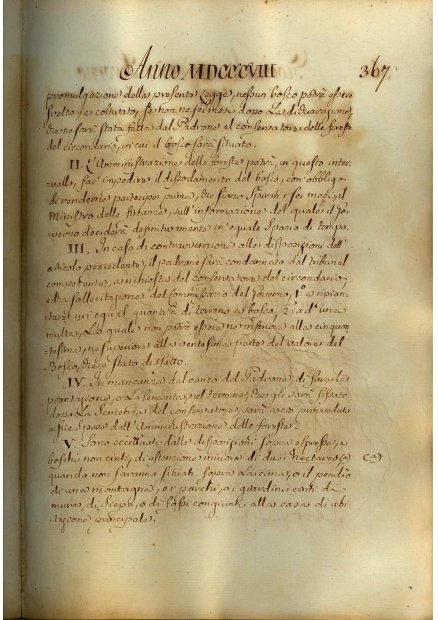 Anno MDCCCVIII 367
promulgazione della presente Legge, nessun bosco potrà essere
svelto, e coltivato, se non sei mesi dopo La dichiarazione,
che ne sarà stata fatta dal Padrone al conservatore delle foreste
del circondario, in cui il bosco sarà situato.
II. L'Amministrazione delle foreste potrà, in questo inter
vallo, far' impedire il dissodamento del bosco, con l'obbligo
di renderne partecipe prima, che sieno spirati i sei mesi, il
Ministro delle finanze, sull'informazione del quale il Go
verno deciderà definitivamente in eguale spazio di tempo.
III. In caso di contravvenzione alle disposizioni dell'
articolo precedente, il padrone sarà condannato dal tribunal
competente, a richiesta del conservatore del circondario,
ed a sollecitazione del commissario del Governo, 1.° a ripian
tare un'egual quantità di terreno a bosco, 2. ad una
multa, La quale non potrà essere nè inferiore alla cinquan
tesima, ne superiore alla ventesima parte del valore del
Bosco, che è stato disfatto.
IV. In mancanza dal canto del Padrone, di fare la
piantazione, o La sementa, nel termine, che gli sarà fissato
dopo La Sentenza del conservatore, sarà a ciò provveduto
a sue spese dall'Amministrazione delle foreste.
V. Sono eccettuati dalle disposizioni sopra espresse, i
boschi non cinti, di estensione minore di due hectares (a) (a)
quando non saranno situati sopra La cima, o il pendio
di una montagna, o i parchi, o i giardini cinti di
mura, di siepi, o di fossi congiunti alla casa di abi
tazione principale.